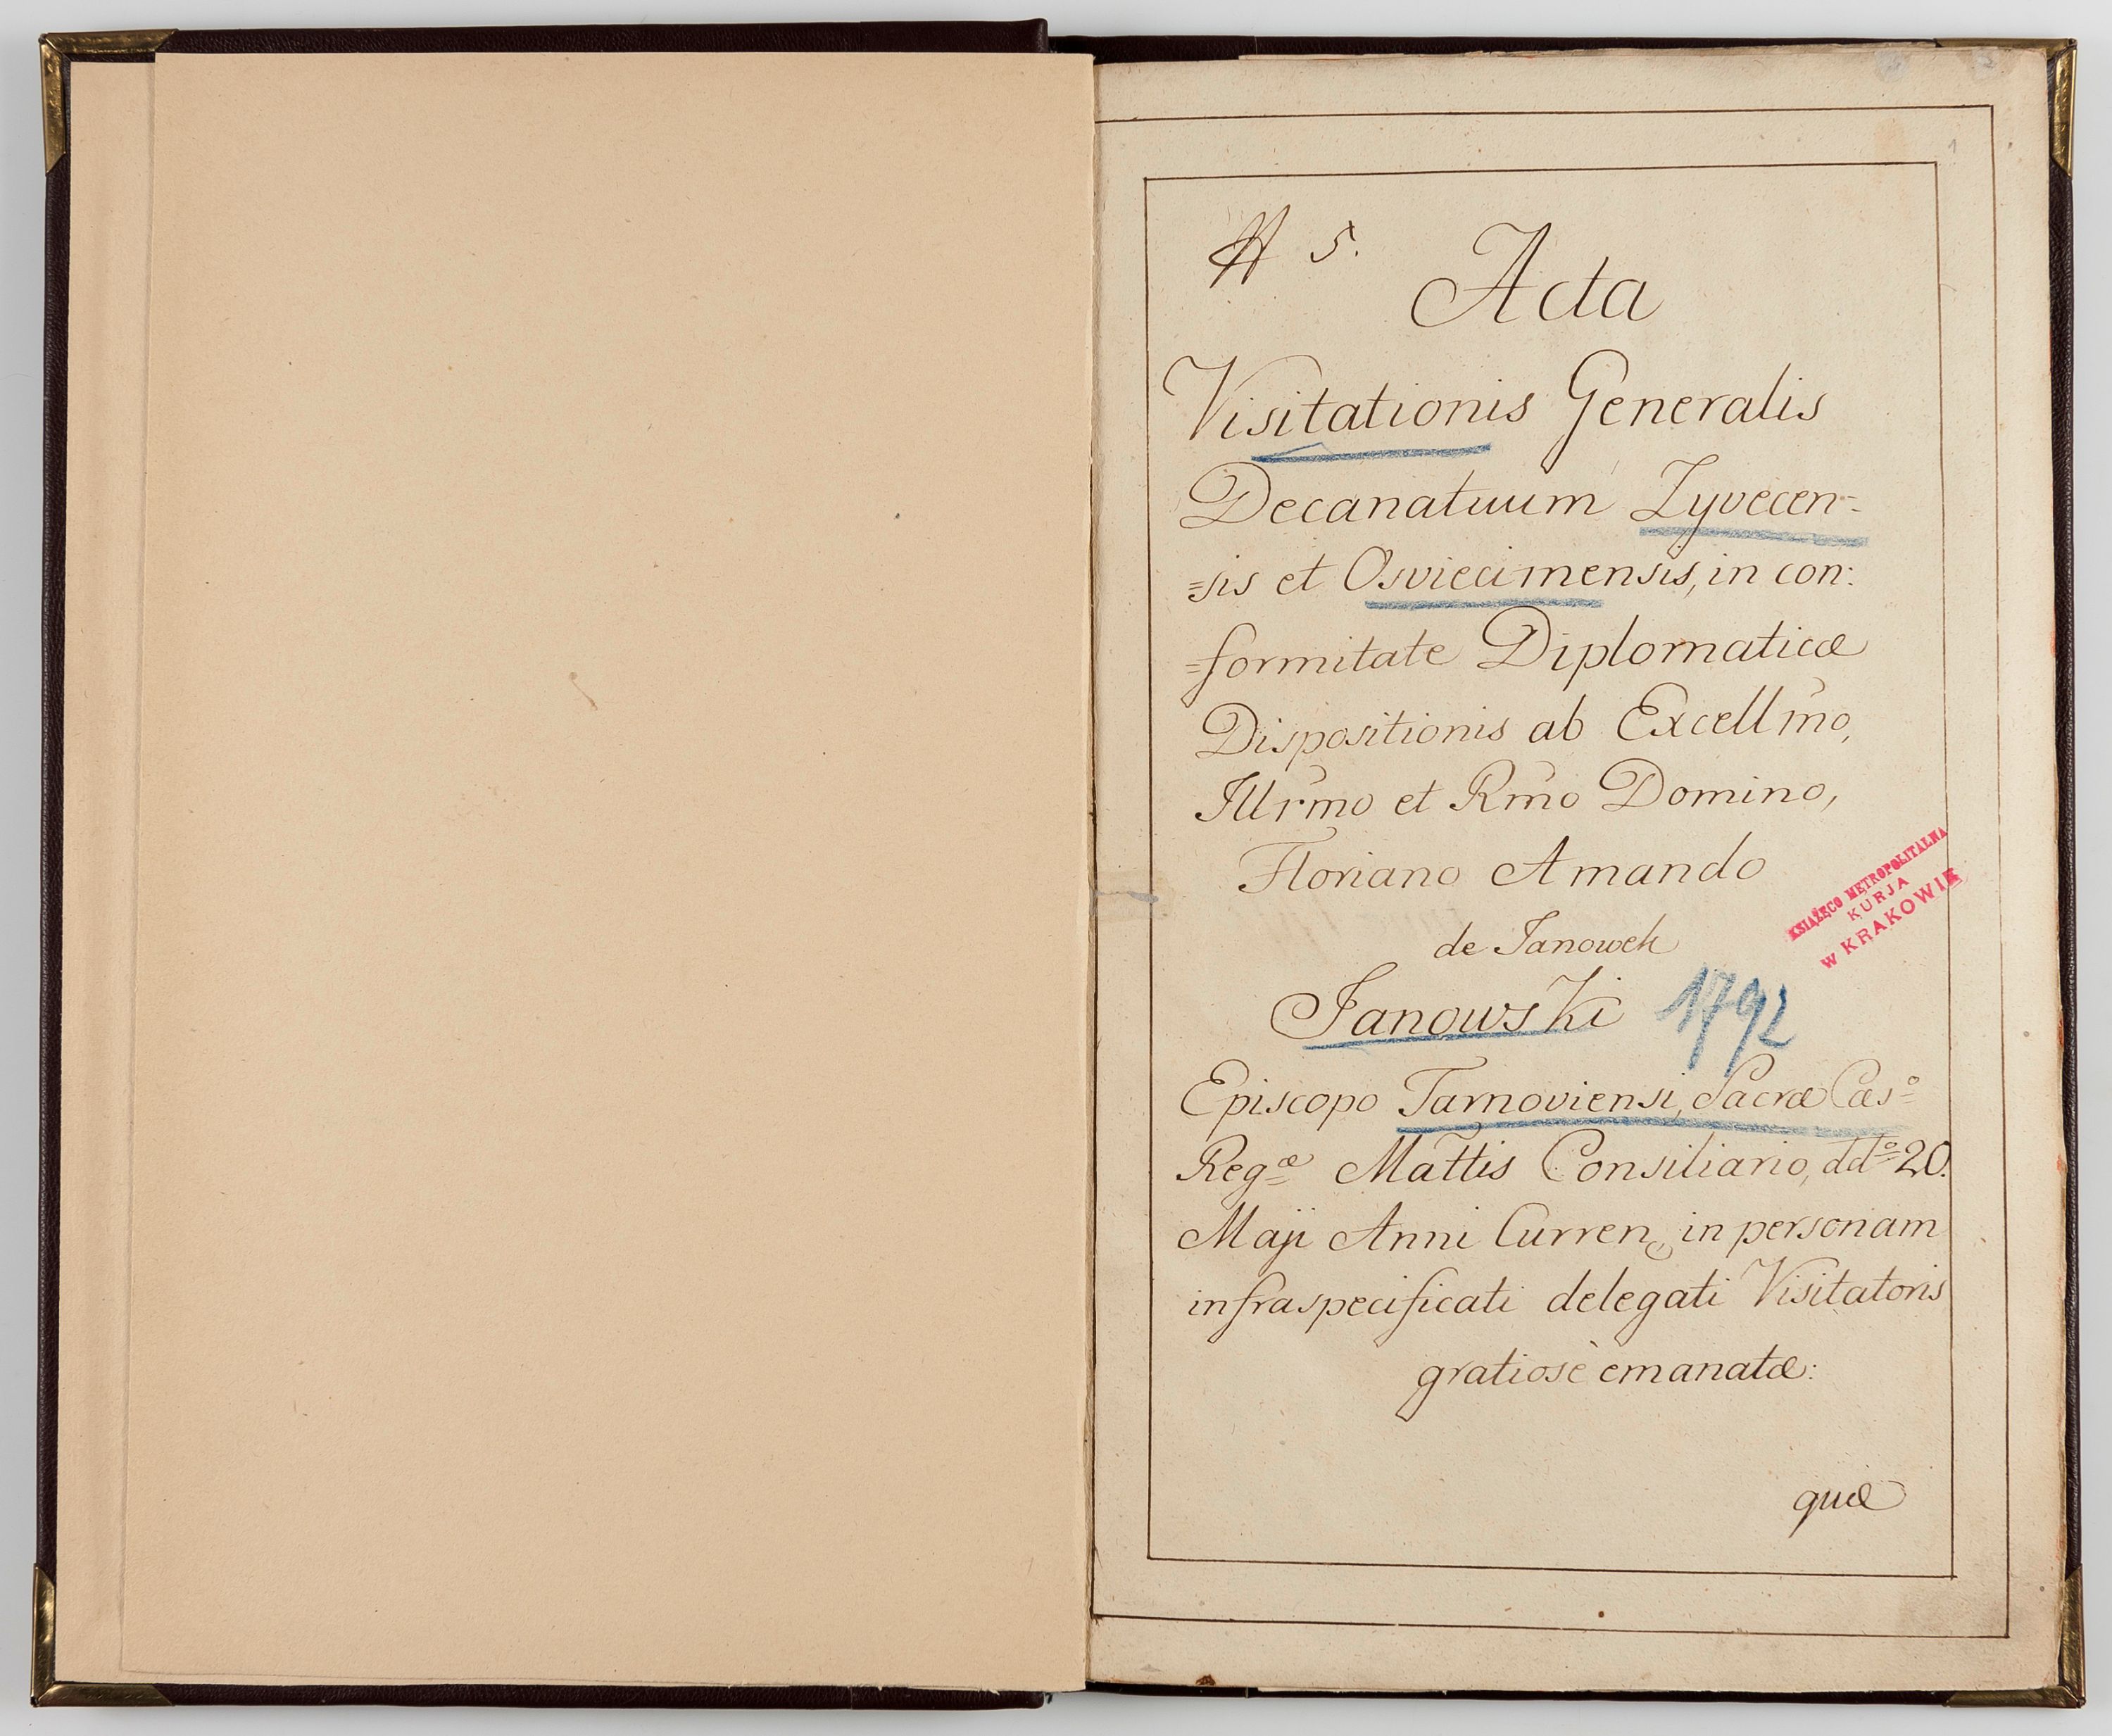 5.
Acta
Visitationis Generalis
Decanatuum Zyvecen=
=sis et Osviecimensis, in con:
=formitate Diplomaticæ
Dispositionis ab Excellmo,
Illrmo et Rmo Domino,
Floriano Amando
de Janowek
Janowski 1792
Episcopo Tarnoviensi, Sacræ Cæs°
Regæ Mattis Consiliario, ddto 20.
Maji Anni Curren, in personam
infraspecificati delegati Visitatoris
gratiosè emanatæ:
quæ
KSIĄŻĘCO METROPOLITALNA
KURJA
w KRAKOWIE
1